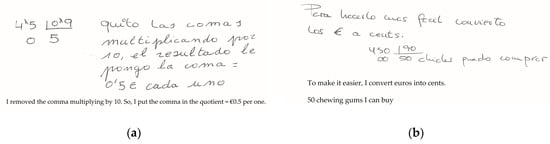 4'5 |0'9
0 5
quito las comas
multiplicando por
10, el resultado le
pongo la coma =
0'5€ cada uno
I removed the comma multiplying by 10. So, I put the comma in the quotient = €0.5 per one.
(a)
Para hacerlo mas facil convierto
los € a cents.
450 |90
00 50 chicles puedo comprar
To make it easier, I convert euros into cents.
50 chewing gums I can buy
(b)